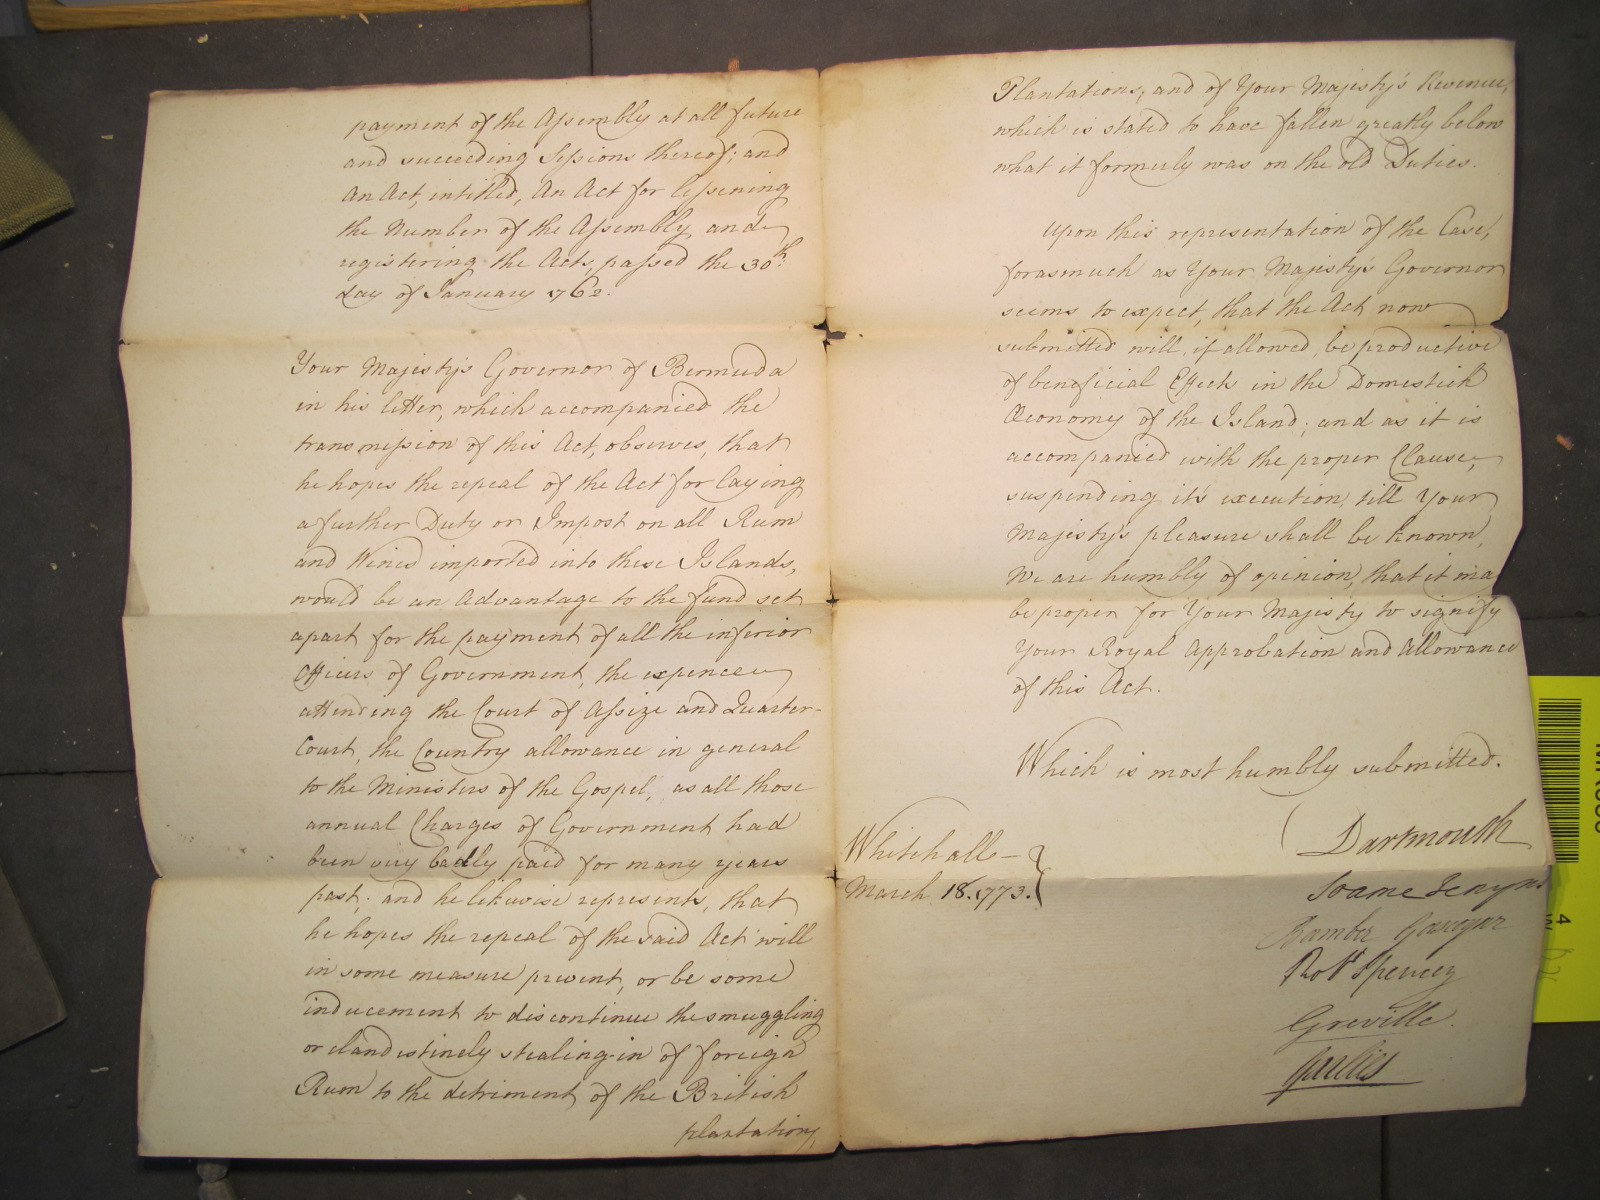 payment of the Assembly at all future
and succeeding Sessions thereof; and
An Act, intitled, An Act for lessening
the Number of the Assembly, and
registering the Acts, passed the 30th
day of January 1762.
Your Majesty's Governor of Bermuda
in his letter, which accompanied the
transmission of this Act, observes, that
he hopes the repeal of the Act for laying
a further Duty or Impost on all Rum
and Wines imported into these Islands,
would be an Advantage to the fund set
apart for the payment of all the inferior
Officers of Government, the expences
attending the Court of Assize and Quarter-
Court, the Country allowance in general
to the Ministers of the Gospel, as all those
annual Charges of Government had
been very badly paid for many years
past; and he likewise represents, that
he hopes the repeal of the said Act will
in some measure prevent, or be some
inducement to discontinue the smuggling
or clandestinely stealing-in of foreign
Rum to the detriment of the British
plantations,
Plantations, and of Your Majesty's Revenue,
which is stated to have fallen greatly below
what it formerly was on the old Duties.
Upon this representation of the Case,
forasmuch as Your Majesty's Governor
seems to expect, that the Act now
submitted will, if allowed, be productive
of beneficial Effects in the Domestick
Œconomy of the Island; and as it is
accompanied with the proper Clause,
suspending it's execution, till Your
Majesty's pleasure shall be known,
We are humbly of opinion, that it ma
be proper for Your Majesty to signify
Your Royal Approbation and Allowance
of this Act.
Which is most humbly submitted.
Whitehall
March 18. 1773.
Dartmouth
Soame Jenyns
Bamber Gascoyne
Robt Spencer
Greville.
4